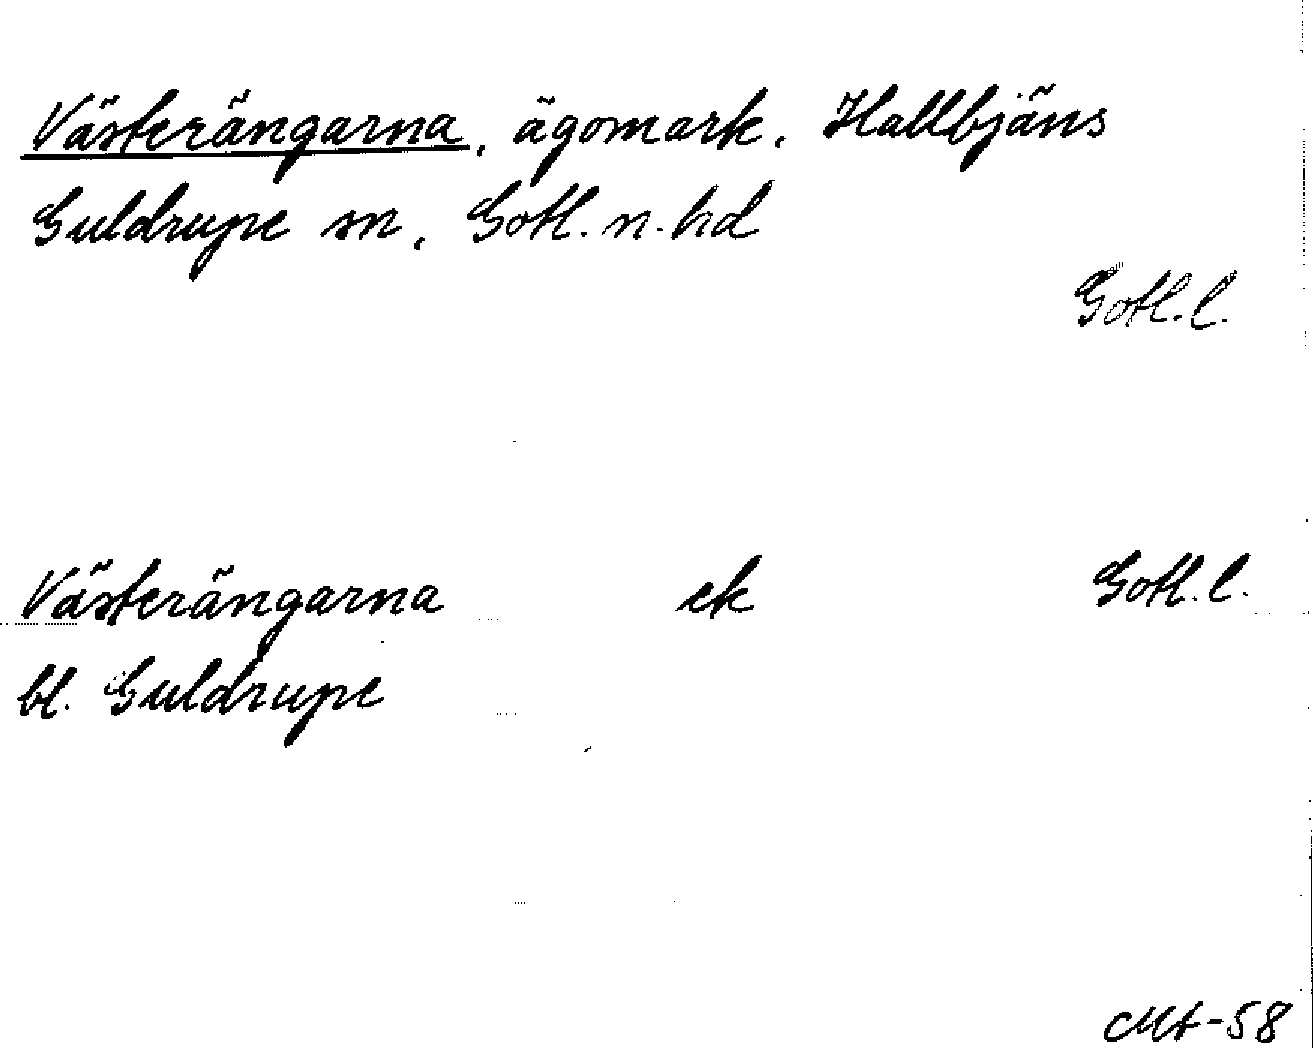 Västerängarna, ägomark, Hallbjäns
Guldrupe sn, Gotl. n. hd
Gotl. l.
Västerängarna ek Gotl. l.
bl. Guldrupe
-58